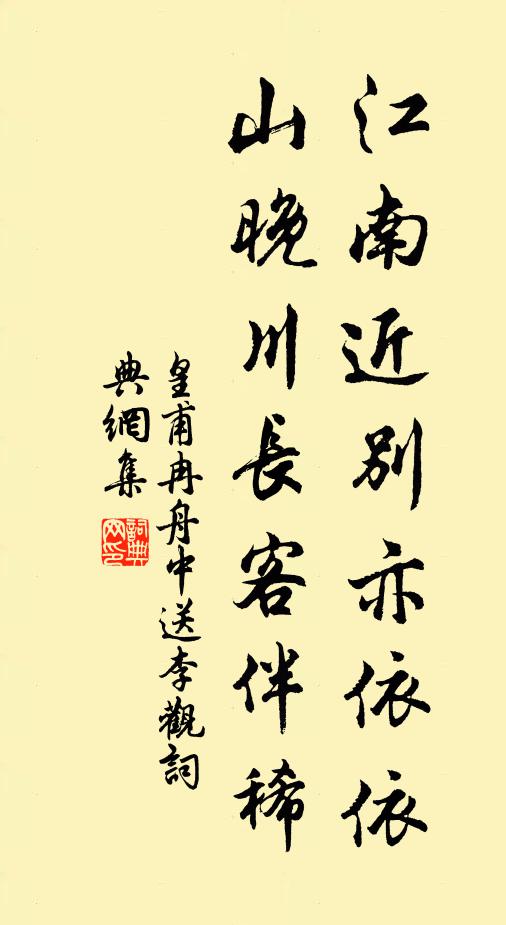 江南近別亦依依
山晚川長客伴稀
皇甫冉舟中送李觀詞
典網集
詞典網印